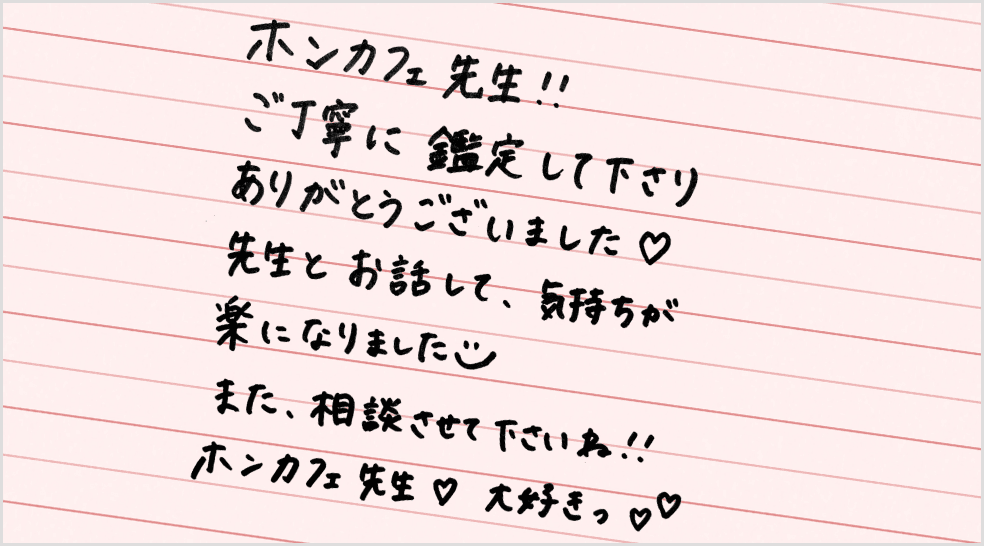 ホンカフェ先生!!
ご丁寧に鑑定して下さり
ありがとうございました♡
先生とお話して、気持ちが
楽になりました
また、相談させて下さいね!!
ホンカフェ先生♡ 大好きっ♡♡